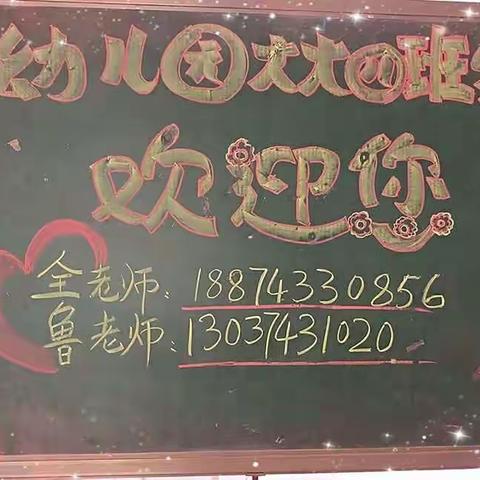 幼儿园大大四班
欢迎你
全老师：18874330856
鲁老师：13037431020